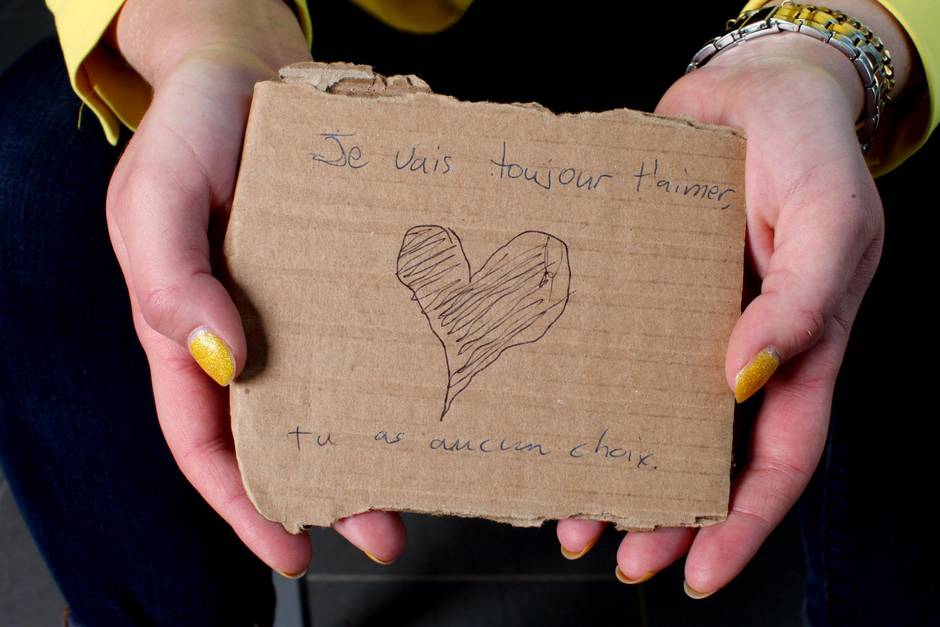 Je vais toujour t'aimer,
tu as aucun choix.